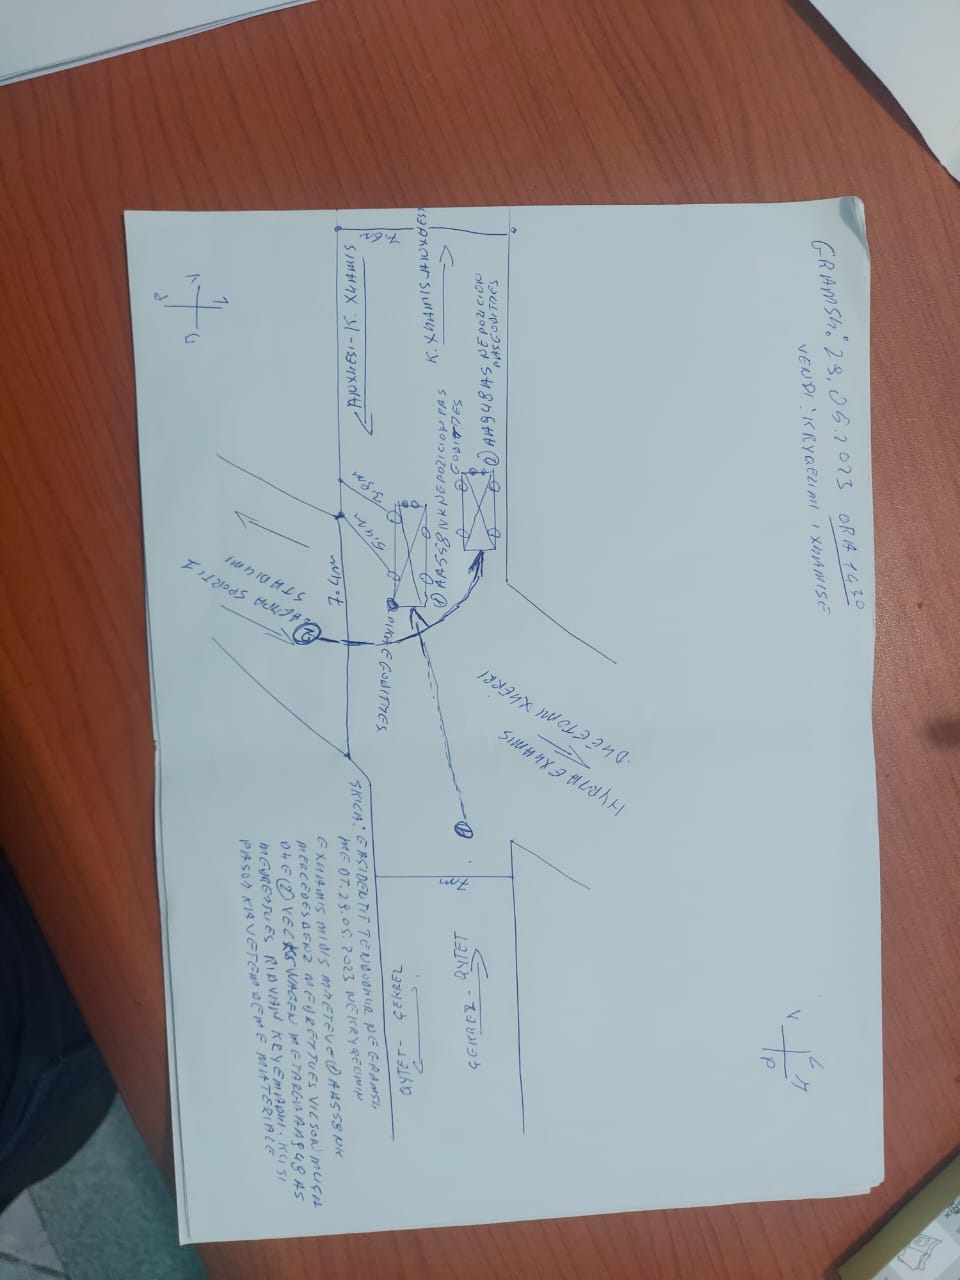 GRAMSH: 29.05.2023 ORA 1430
VENDI: KRYQEZIMI I XHAMISE
HYRJA E XHAMIS
DHE ETOMI XHERRI
② AA948AS NE POZICION
PAS GODITJES
① AA558NK NE POZICION PAS
GODITJES
PIKA E GODITJES
K. XHAMIS -
7.6m
- K. XHAMIS
3.8m
5.4m
7.4m
1
2
PALLTRA SPORTI 1
STADIUMI
ÇEKREZ - QYTET
7m
QYTET - ÇEKREZ
SKICA: E AKSIDENTIT TE NDODHUR NE GRAMSH
ME DT. 29.05.2023 NE KRYQEZIMIN
E XHAMIS MIDIS MJETEVE ① AA558NK
MERCEDES BENZ ME DREJTUES VILSON MUÇA
DHE ② VOLKSWAGEN ME TARGA AA948AS
ME DREJTUES RIDVAN KRYEMADHI. KU SI
PASOJ KA VETEM DEME MATERIALE